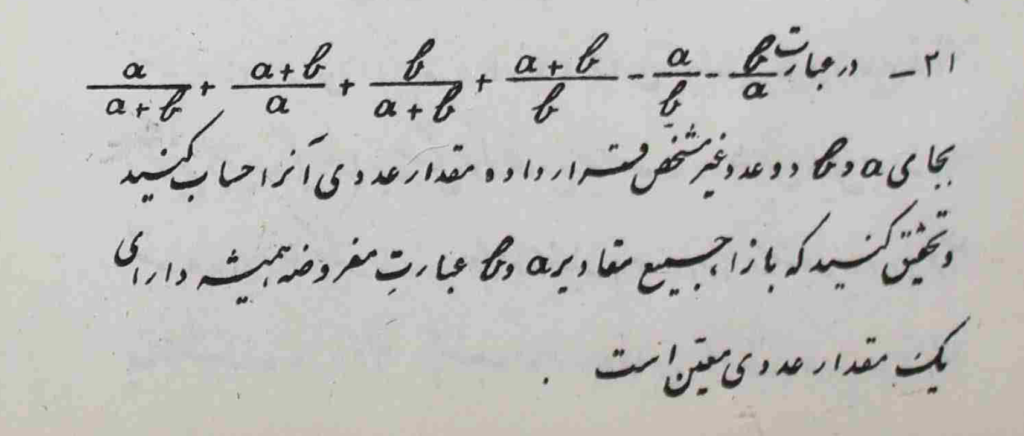 ۲۱ـ در عبارت a/(a+b) + (a+b)/a + b/(a+b) + (a+b)/b - a/b - b/a
بجای a و b دو عدد غیر مشخّص قرار داده مقدار عددی آنرا حساب کنید
و تحقیق کنید که بازاء جمیع مقادیر a و b عبارتِ مفروضه همیشه دارای
یک مقدار عددی معیّن است .